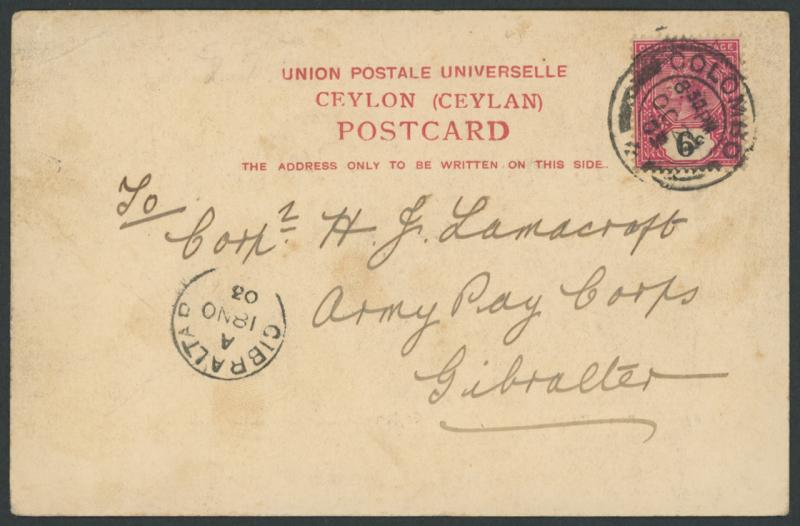 UNION POSTALE UNIVERSELLE
CEYLON (CEYLAN)
POSTCARD
THE ADDRESS ONLY TO BE WRITTEN ON THIS SIDE.
COLOMBO
6
To
Corpl H. J. Lamacroft
Army Pay Corps
Gibralter
GIBRALTAR
A
18 NO
03